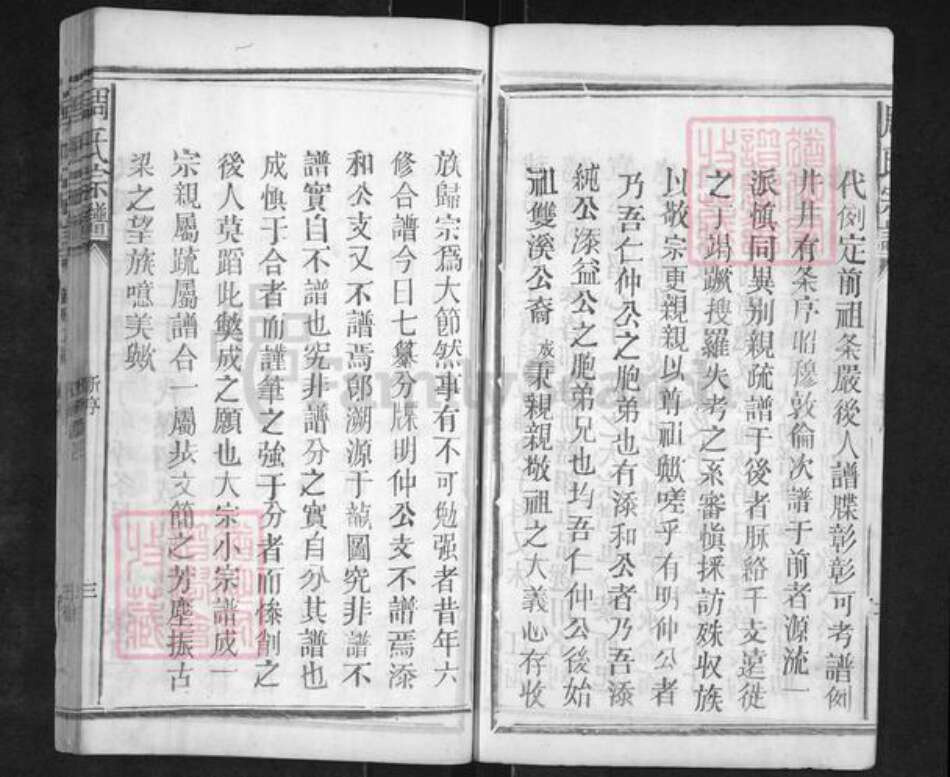 代例定前祖条嚴後人譜牒彰彰可考譜例
井井有条序昭穆敦倫次譜于前者源流一
派慎同異别親疏譜于後者脉絡千支遠徙
之丁竭蹶搜羅失考之系審慎採訪殊收族
以敬宗更親親以尊祖歟嗟乎有明仲公者
乃吾仁仲公之胞弟也有添和公者乃吾添
純公添益公之胞弟兄也均吾仁仲公後始
祖雙溪公裔 成秉親親敬祖之大義心存收
族歸宗為大節然事有不可勉强者昔年六
修合譜今日七纂分牒明仲公支不譜焉添
和公支又不譜焉卽溯源于誌圖究非譜不
譜實自不譜也究非譜分之實自分其譜也
成慎于合者而謹筆之強于分者而條削之
後人莫蹈此敷成之願也大宗小宗譜成一
宗親屬疏屬譜合一屬共文簡之芳塵振古
梁之望族噫美歟
周氏宗譜
新序
三